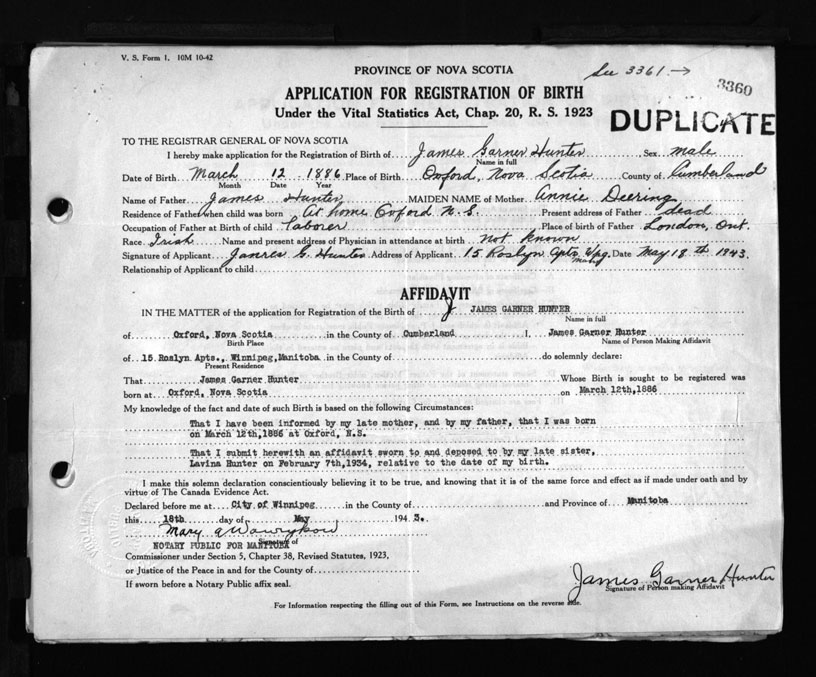 V. S. Form 1. 10M 10-42
PROVINCE OF NOVA SCOTIA
See 3361 →
3360
APPLICATION FOR REGISTRATION OF BIRTH
Under the Vital Statistics Act, Chap. 20, R. S. 1923
DUPLICATE
TO THE REGISTRAR GENERAL OF NOVA SCOTIA
I hereby make application for the Registration of Birth of James Garner Hunter, Sex male
Name in full
Date of Birth March 12 1886 Place of Birth Oxford, Nova Scotia County of Cumberland
Month Date Year
Name of Father James Hunter MAIDEN NAME of Mother Annie Deering
Residence of Father when child was born At home Oxford N.S. Present address of Father dead
Occupation of Father at Birth of child laborer Place of birth of Father London, Ont.
Race Irish Name and present address of Physician in attendance at birth not known
Signature of Applicant James G. Hunter Address of Applicant 15 Roslyn Apts Wpg. Man Date May 18th 1943.
Relationship of Applicant to child
AFFIDAVIT
IN THE MATTER of the application for Registration of the Birth of J JAMES GARNER HUNTER
Name in full
of Oxford, Nova Scotia in the County of Cumberland I, James Garner Hunter
Birth Place Name of Person Making Affidavit
of 15 Roslyn Apts., Winnipeg, Manitoba in the County of do solemnly declare:
Present Residence
That James Garner Hunter Whose Birth is sought to be registered was
born at Oxford, Nova Scotia on March 12th, 1886
My knowledge of the fact and date of such Birth is based on the following Circumstances:
That I have been informed by my late mother, and by my father, that I was born
on March 12th, 1886 at Oxford, N.S.
That I submit herewith an affidavit sworn to and deposed to by my late sister,
Lavina Hunter on February 7th, 1934, relative to the date of my birth.
I make this solemn declaration conscientiously believing it to be true, and knowing that it is of the same force and effect as if made under oath and by
virtue of The Canada Evidence Act.
Declared before me at City of Winnipeg in the County of and Province of Manitoba
this 18th day of May 1943.
Mary A Wawrykow
Signature of
NOTARY PUBLIC FOR MANITOBA
Commissioner under Section 5, Chapter 38, Revised Statutes, 1923,
or Justice of the Peace in and for the County of
If sworn before a Notary Public affix seal.
James Garner Hunter
Signature of Person making Affidavit
For Information respecting the filling out of this Form, see Instructions on the reverse side.